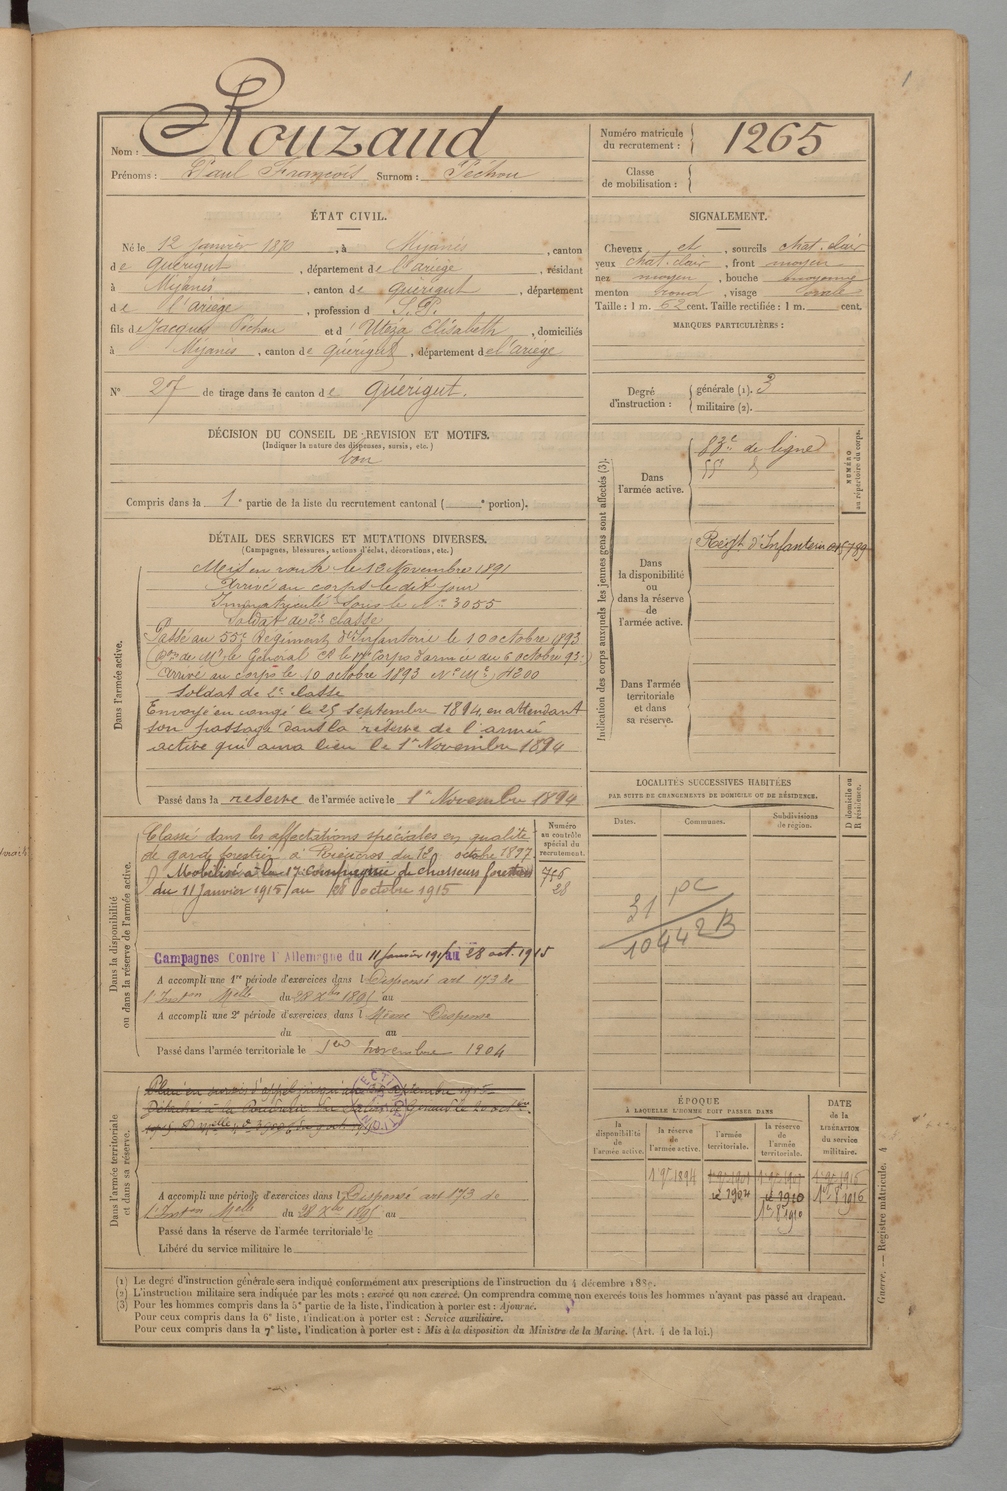 1
Nom : Rouzaud
Prénoms : Paul François Surnom : Péchou
Numéro matricule du recrutement : 1265
Classe de mobilisation :
ÉTAT CIVIL.
Né le 12 janvier 1870, à Mijanès, canton
de Quérigut, département de l'ariège, résidant
à Mijanès, canton de Quérigut, département
de l'ariège, profession d S.P.
fils de Jacques Péchou et d'Uteza Elisabeth, domiciliés
à Mijanès, canton de Quérigut, département de l'ariège
N° 27 de tirage dans le canton de Quérigut.
SIGNALEMENT.
Cheveux et, sourcils chat. clair
yeux chat. clair, front moyen
nez moyen, bouche moyenne
menton rond, visage ovale
Taille : 1 m. 62 cent. Taille rectifiée : 1 m. cent.
MARQUES PARTICULIÈRES :
Degré d'instruction :
générale (1). 3
militaire (2).
DÉCISION DU CONSEIL DE REVISION ET MOTIFS.
(Indiquer la nature des dispenses, sursis, etc.)
bon
Compris dans la 1e partie de la liste du recrutement cantonal ( e portion).
DÉTAIL DES SERVICES ET MUTATIONS DIVERSES.
(Campagnes, blessures, actions d'éclat, décorations, etc.)
Dans l'armée active.
Mis en route le 13 Novembre 1891
Arrivé au corps le dit jour
Immatriculé sous le N° 3055
Soldat de 2e classe
Passé au 55e Régiment d'Infanterie le 10 octobre 1893
(Don de Mr le Général Ct le 17e Corps d'armée du 6 octobre 93.)
Arrivé au corps le 10 octobre 1893 N° Mle 4200
Soldat de 2e classe
Envoyé en congé le 25 septembre 1894, en attendant
son passage dans la réserve de l'armée
active qui aura lieu le 1er Novembre 1894
Passé dans la réserve de l'armée active le 1er Novembre 1894
Indication des corps auxquels les jeunes gens sont affectés (3).
NUMÉRO au répertoire du corps.
Dans l'armée active.
83e de ligne
55e d°
Dans la disponibilité ou dans la réserve de l'armée active.
Régt d'Infanterie
Dans l'armée territoriale et dans sa réserve.
Dans la disponibilité ou dans la réserve de l'armée active.
Numéro au contrôle spécial du recrutement.
Classé dans les affectations spéciales en qualité
de garde forestier à du 12 octobre 1897
Mobilisé à la 17e Compagnie de Chasseurs forestiers
du 11 janvier 1915 au 28 octobre 1915
28
Campagnes Contre l'Allemagne du 11 janvier 1915 au 28 oct. 1915
A accompli une 1re période d'exercices dans l Dispensé art 173 de
l'Inston Melle du 28 Xbre 1895 au
A accompli une 2e période d'exercices dans l Même Dispense
du au
Passé dans l'armée territoriale le 1er novembre 1904
LOCALITÉS SUCCESSIVES HABITÉES
PAR SUITE DE CHANGEMENTS DE DOMICILE OU DE RÉSIDENCE.
Dates. Communes. Subdivisions de région. D domicile ou R résidence.
Dans l'armée territoriale et dans sa réserve.
A accompli une période d'exercices dans l Dispensé art 173 de
l'Inston Melle du 28 Xbre 1895 au
Passé dans la réserve de l'armée territoriale le
Libéré du service militaire le
ÉPOQUE
À LAQUELLE L'HOMME DOIT PASSER DANS
la disponibilité de l'armée active.
la réserve de l'armée active.
l'armée territoriale.
la réserve de l'armée territoriale.
DATE de la LIBÉRATION du service militaire.
1er 9bre 1894
Guerre. — Registre matricule. 4
(1) Le degré d'instruction générale sera indiqué conformément aux prescriptions de l'instruction du 4 décembre 1889.
(2) L'instruction militaire sera indiquée par les mots : exercé ou non exercé. On comprendra comme non exercés tous les hommes n'ayant pas passé au drapeau.
(3) Pour les hommes compris dans la 5e partie de la liste, l'indication à porter est : Ajourné.
Pour ceux compris dans la 6e liste, l'indication à porter est : Service auxiliaire.
Pour ceux compris dans la 7e liste, l'indication à porter est : Mis à la disposition du Ministre de la Marine. (Art. 4 de la loi.)